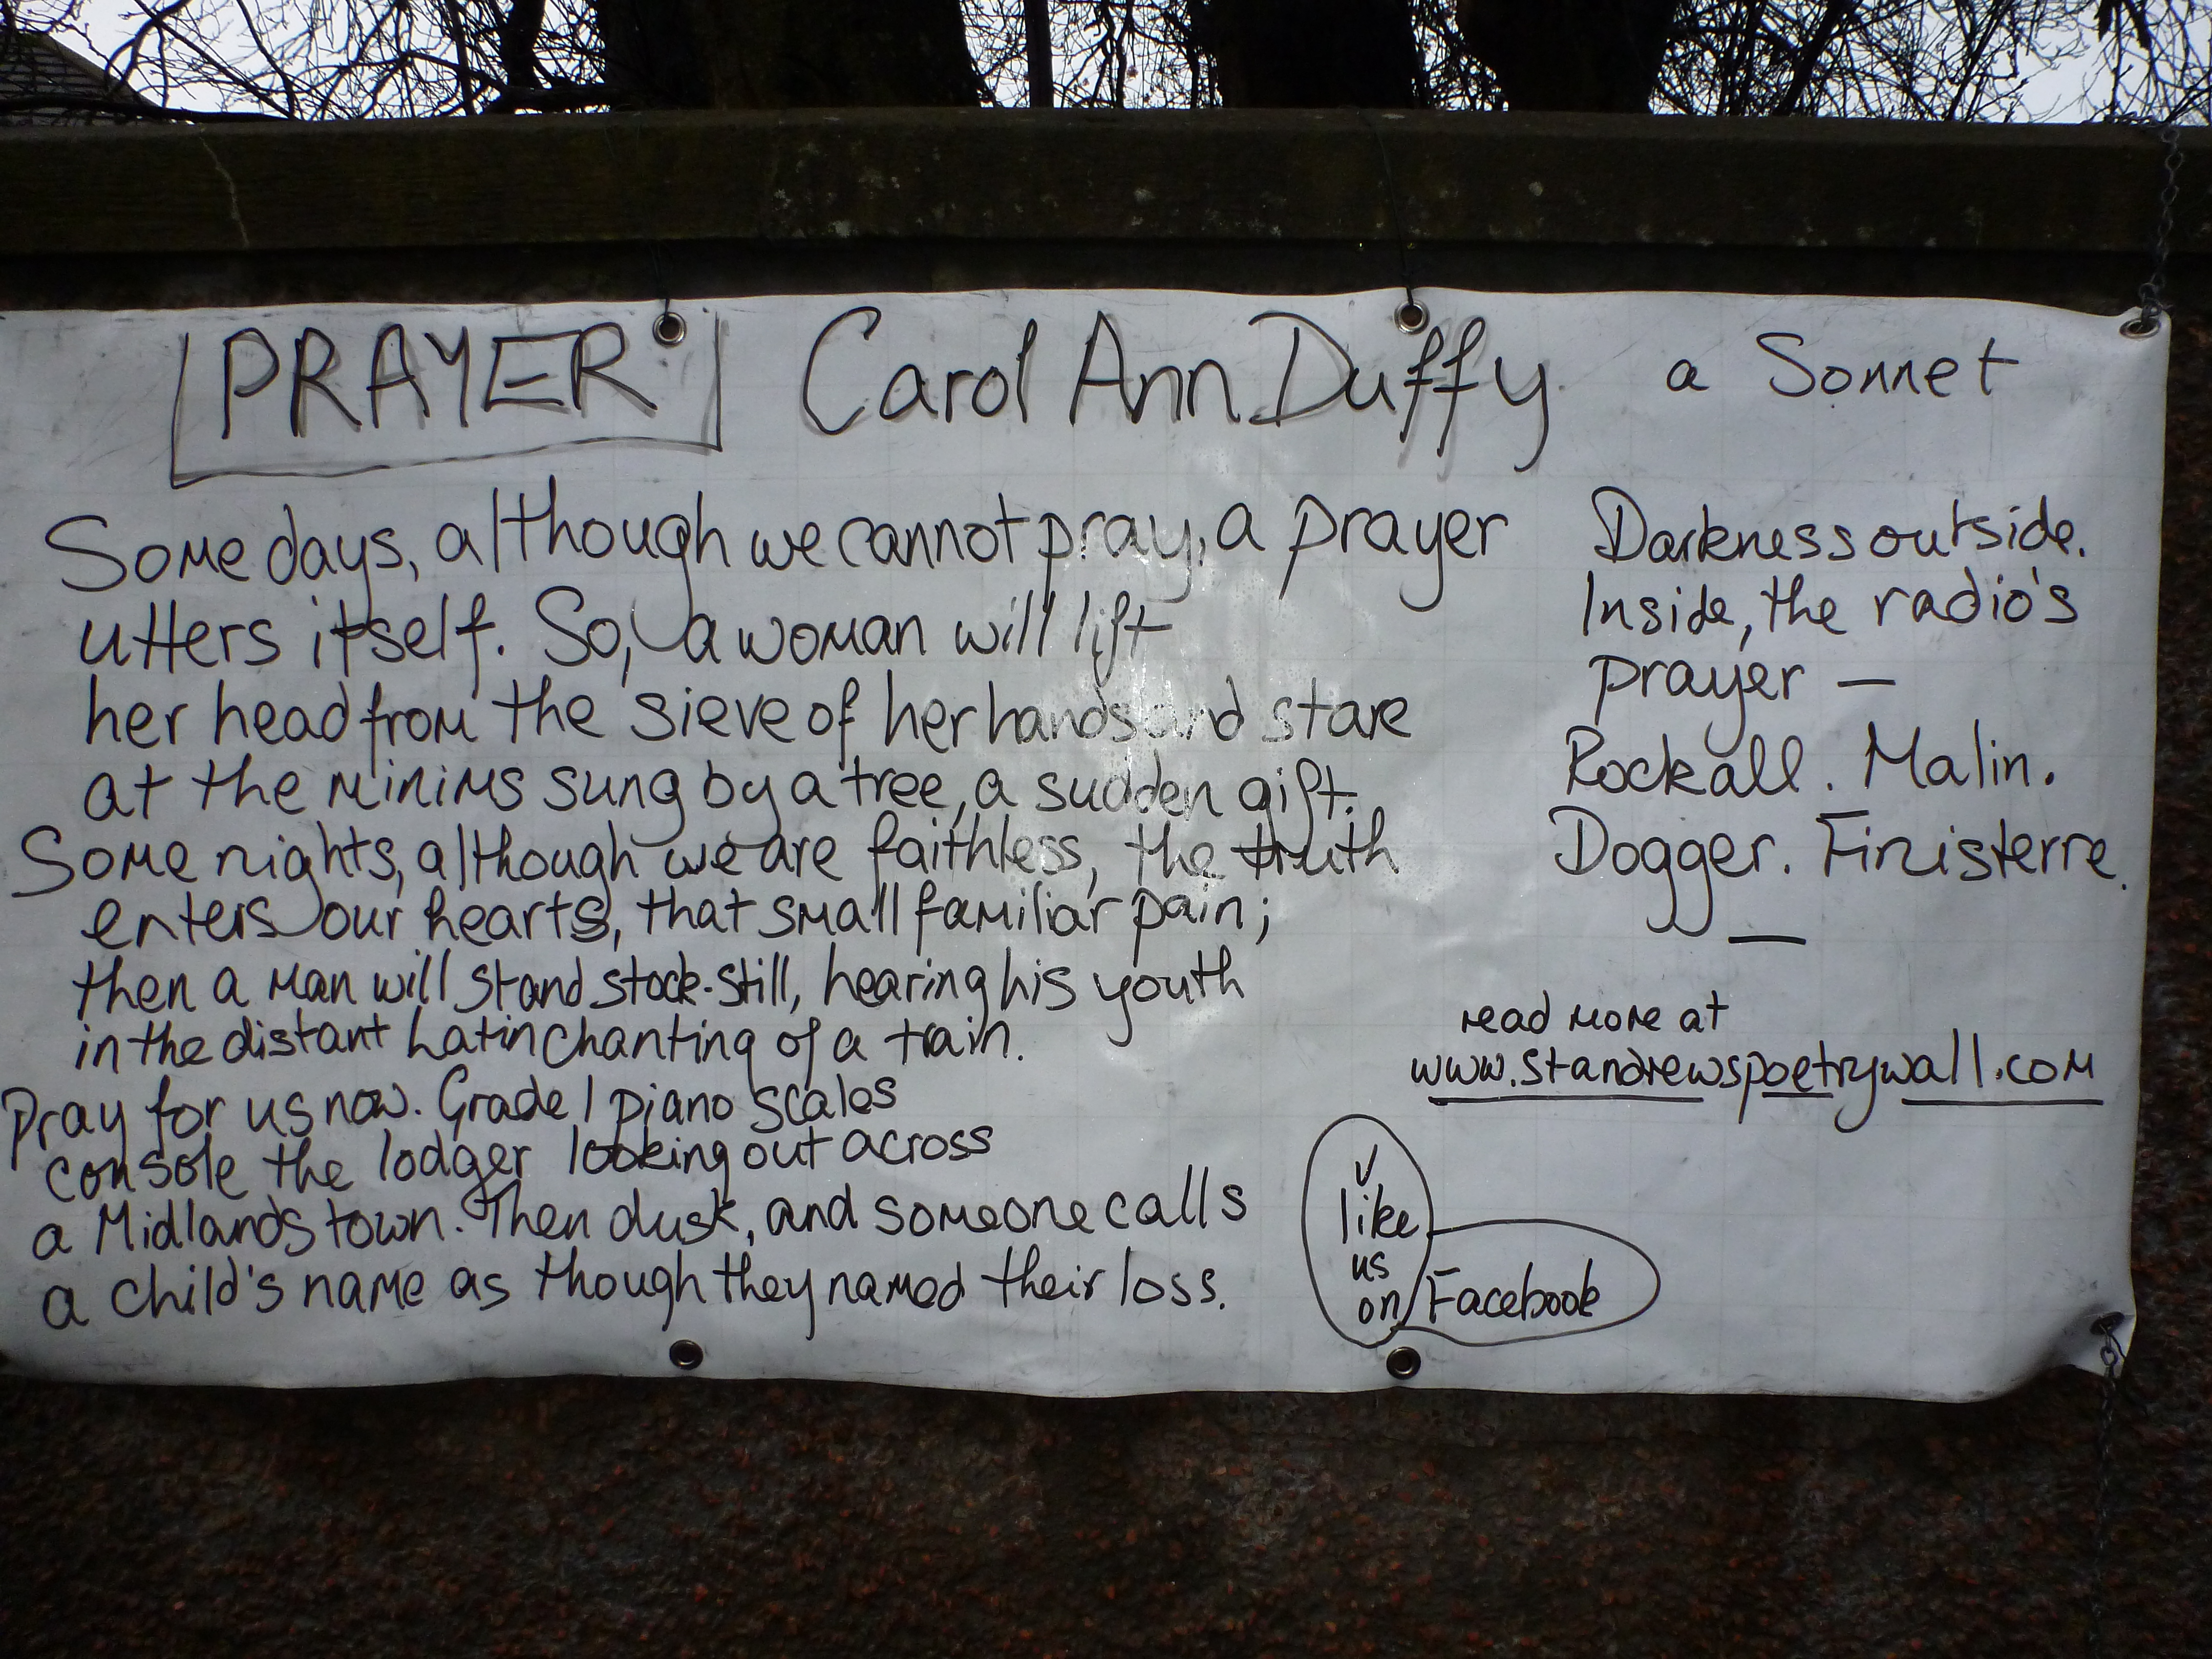 PRAYER Carol Ann Duffy a Sonnet
Some days, although we cannot pray, a prayer
utters itself. So, a woman will lift
her head from the sieve of her hands and stare
at the minims sung by a tree, a sudden gift.
Some nights, although we are faithless, the truth
enters our hearts, that small familiar pain;
then a man will stand stock-still, hearing his youth
in the distant Latin chanting of a train.
Pray for us now. Grade 1 piano scales
console the lodger looking out across
a Midlands town. Then dusk, and someone calls
a child's name as though they named their loss.
Darkness outside.
Inside, the radio's
prayer —
Rockall. Malin.
Dogger. Finisterre.
read more at
www.standrewspoetrywall.com
like
us
on Facebook